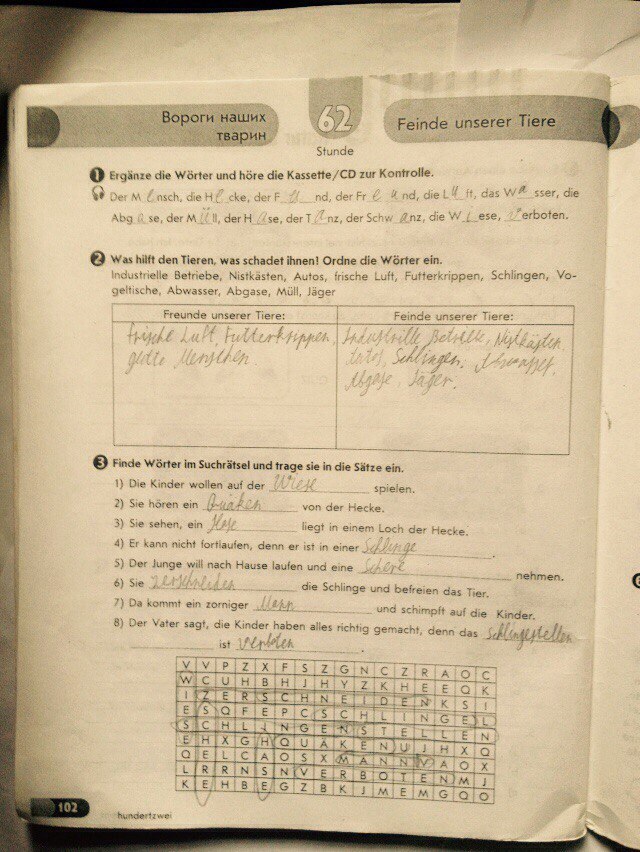 Вороги наших
тварин
62
Stunde
Feinde unserer Tiere
1 Ergänze die Wörter und höre die Kassette/CD zur Kontrolle.
Der Mensch, die Hecke, der F u nd, der Freund, die Luft, das Wasser, die
Abgase, der Müll, der Hase, der Tanz, der Schwanz, die Wiese, verboten.
2 Was hilft den Tieren, was schadet ihnen! Ordne die Wörter ein.
Industrielle Betriebe, Nistkästen, Autos, frische Luft, Futterkrippen, Schlingen, Vo-
geltische, Abwasser, Abgase, Müll, Jäger
Freunde unserer Tiere:
frische Luft, Futterkrippen,
Menschen.
Feinde unserer Tiere:
Industrille Betriebe, Nistkästen,
Schlingen, Abwasser,
Abgase Jäger.
3 Finde Wörter im Suchrätsel und trage sie in die Sätze ein.
1) Die Kinder wollen auf der Wiese spielen.
2) Sie hören ein Quaken von der Hecke.
3) Sie sehen, ein Hase liegt in einem Loch der Hecke.
4) Er kann nicht fortlaufen, denn er ist in einer Schlinge.
5) Der Junge will nach Hause laufen und eine Schere nehmen.
6) Sie zerschneiden die Schlinge und befreien das Tier.
7) Da kommt ein zorniger Mann und schimpft auf die Kinder.
8) Der Vater sagt, die Kinder haben alles richtig gemacht, denn das Schlingestellen
ist verboten.
V V P Z X F S Z G N C Z R A O C
W C U H B H J H Y Z K H E E Q K
I Z E R S C H N E I D E N K S I
E S Q F E P C S C H L I N G E L
S C H L I N G E N S T E L L E N
E H X G H Q U Ä K E N U J H X Q
Q E L C A O S X M A N N V A O X
L R R N S N V E R B O T E N M J
K E H B E G Z B K J M E M G Q O
102
hundertzwei